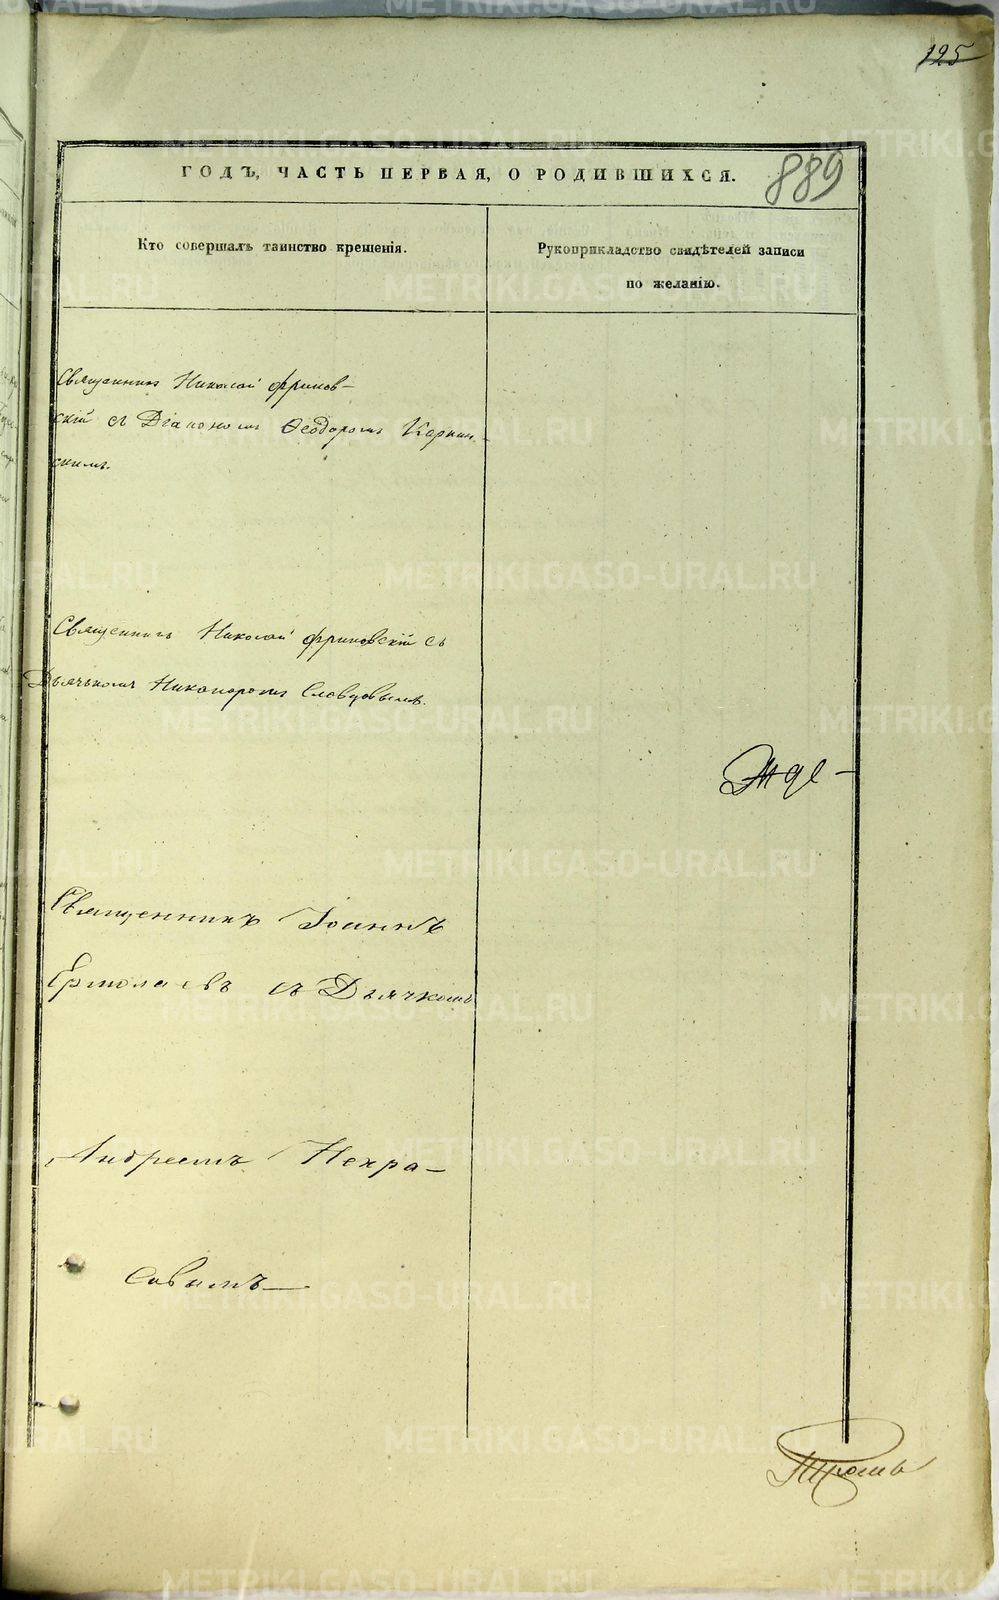 125
889
ГОДЪ, ЧАСТЬ ПЕРВАЯ, О РОДИВШИХСЯ.
Кто совершалъ таинство крещенія.
Рукоприкладство свидѣтелей записи
по желанію.
Священникъ Николай Фринов-
скій съ Діакономъ Ѳеодоромъ Карпин-
скимъ.
Священникъ Николай Фриновскій съ
Дьячькомъ Никаноромъ Словцовымъ.
Священникъ Іоаннъ
Ермолаевъ съ Дьячкомъ
Андреемъ Некра-
совымъ
METRIKI.GASO-URAL.RU